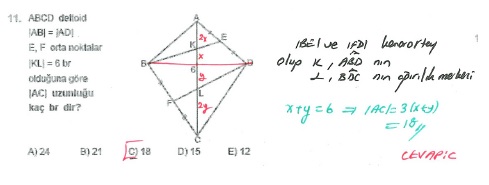 11. ABCD deltoid
|AB| = |AD|
E, F orta noktalar
|KL| = 6 br
olduğuna göre
|AC| uzunluğu
kaç br dir?
A
2x
E
K
x
B
6
D
y
L
F
2y
C
|BE| ve |FD| kenarortay
olup K, ABD nın
L, BDC nın ağırlık merkezi
x+y=6 ⇒ |AC|=3(x+y)
=18//
CEVAP: C
A) 24 B) 21 C) 18 D) 15 E) 12